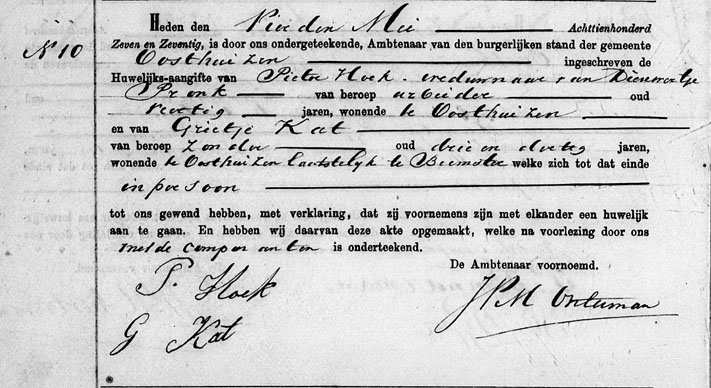 N 10
Heden den Vierden Mei Achttienhonderd
Zeven en Zeventig, is door ons ondergeteekende, Ambtenaar van den burgerlijken stand der gemeente
Oosthuizen ingeschreven de
Huwelijks-aangifte van Pieter Hoek weduwnaar van Dieuwertje
Pronk van beroep arbeider oud
veertig jaren, wonende te Oosthuizen
en van Grietje Kat
van beroep zonder oud drie en dertig jaren,
wonende te Oosthuizen laatstelijk te Beemster welke zich tot dat einde
in persoon
tot ons gewend hebben, met verklaring, dat zij voornemens zijn met elkander een huwelijk
aan te gaan. En hebben wij daarvan deze akte opgemaakt, welke na voorlezing door ons
met de comparanten is onderteekend.
De Ambtenaar voornoemd.
P. Hoek
G Kat